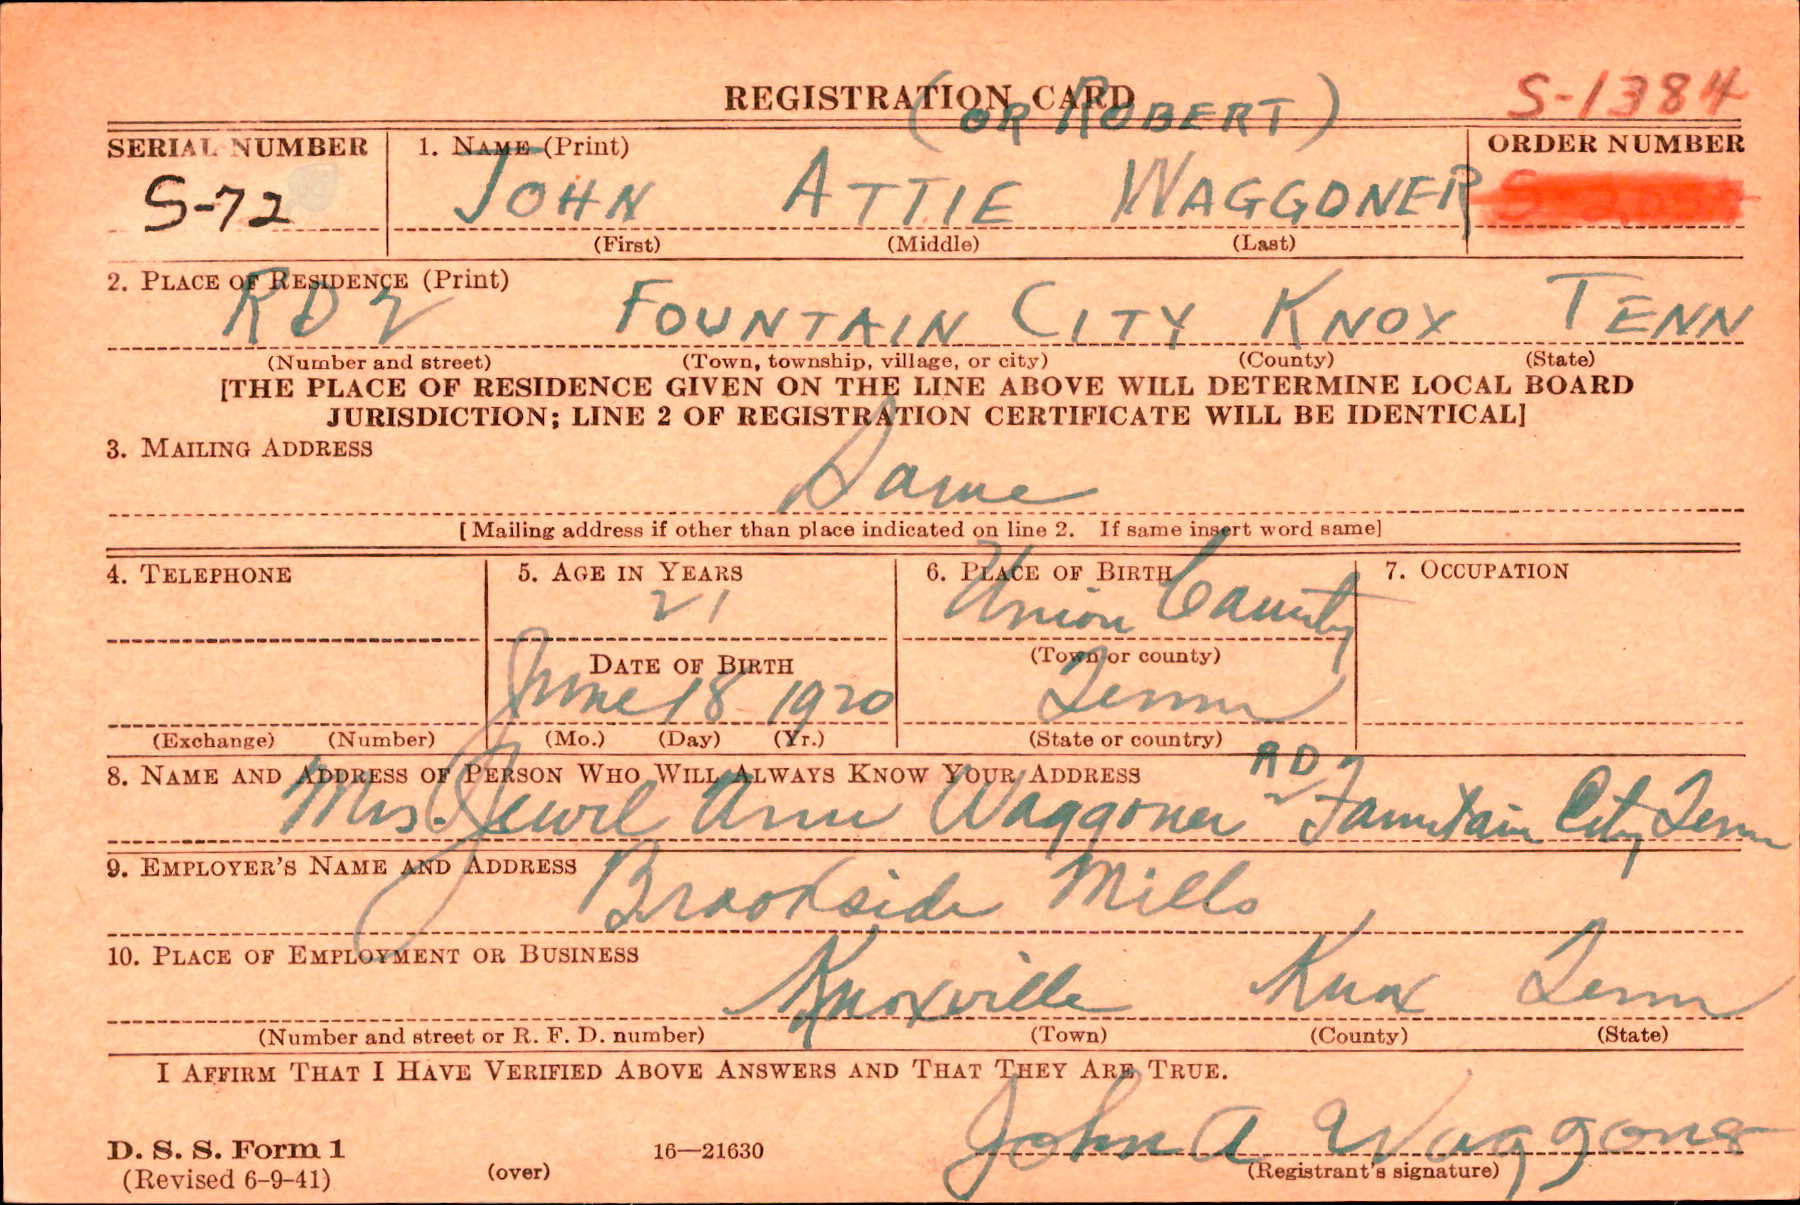 REGISTRATION CARD
(OR ROBERT)
S-1384
SERIAL NUMBER 1. NAME (Print) ORDER NUMBER
S-72 JOHN ATTIE WAGGONER
(First) (Middle) (Last)
2. PLACE OF RESIDENCE (Print)
RD 2 FOUNTAIN CITY KNOX TENN
(Number and street) (Town, township, village, or city) (County) (State)
[THE PLACE OF RESIDENCE GIVEN ON THE LINE ABOVE WILL DETERMINE LOCAL BOARD
JURISDICTION; LINE 2 OF REGISTRATION CERTIFICATE WILL BE IDENTICAL]
3. MAILING ADDRESS
Same
[Mailing address if other than place indicated on line 2. If same insert word same]
4. TELEPHONE 5. AGE IN YEARS 6. PLACE OF BIRTH 7. OCCUPATION
21 Union County
DATE OF BIRTH (Town or county)
June 18 1920 Tenn
(Exchange) (Number) (Mo.) (Day) (Yr.) (State or country)
8. NAME AND ADDRESS OF PERSON WHO WILL ALWAYS KNOW YOUR ADDRESS
Mrs. Jewil Ann Waggoner RD 2 Fountain City Tenn
9. EMPLOYER'S NAME AND ADDRESS
Brookside Mills
10. PLACE OF EMPLOYMENT OR BUSINESS
Knoxville Knox Tenn
(Number and street or R. F. D. number) (Town) (County) (State)
I AFFIRM THAT I HAVE VERIFIED ABOVE ANSWERS AND THAT THEY ARE TRUE.
John A Waggoner
D. S. S. Form 1 16—21630 (Registrant's signature)
(Revised 6-9-41) (over)